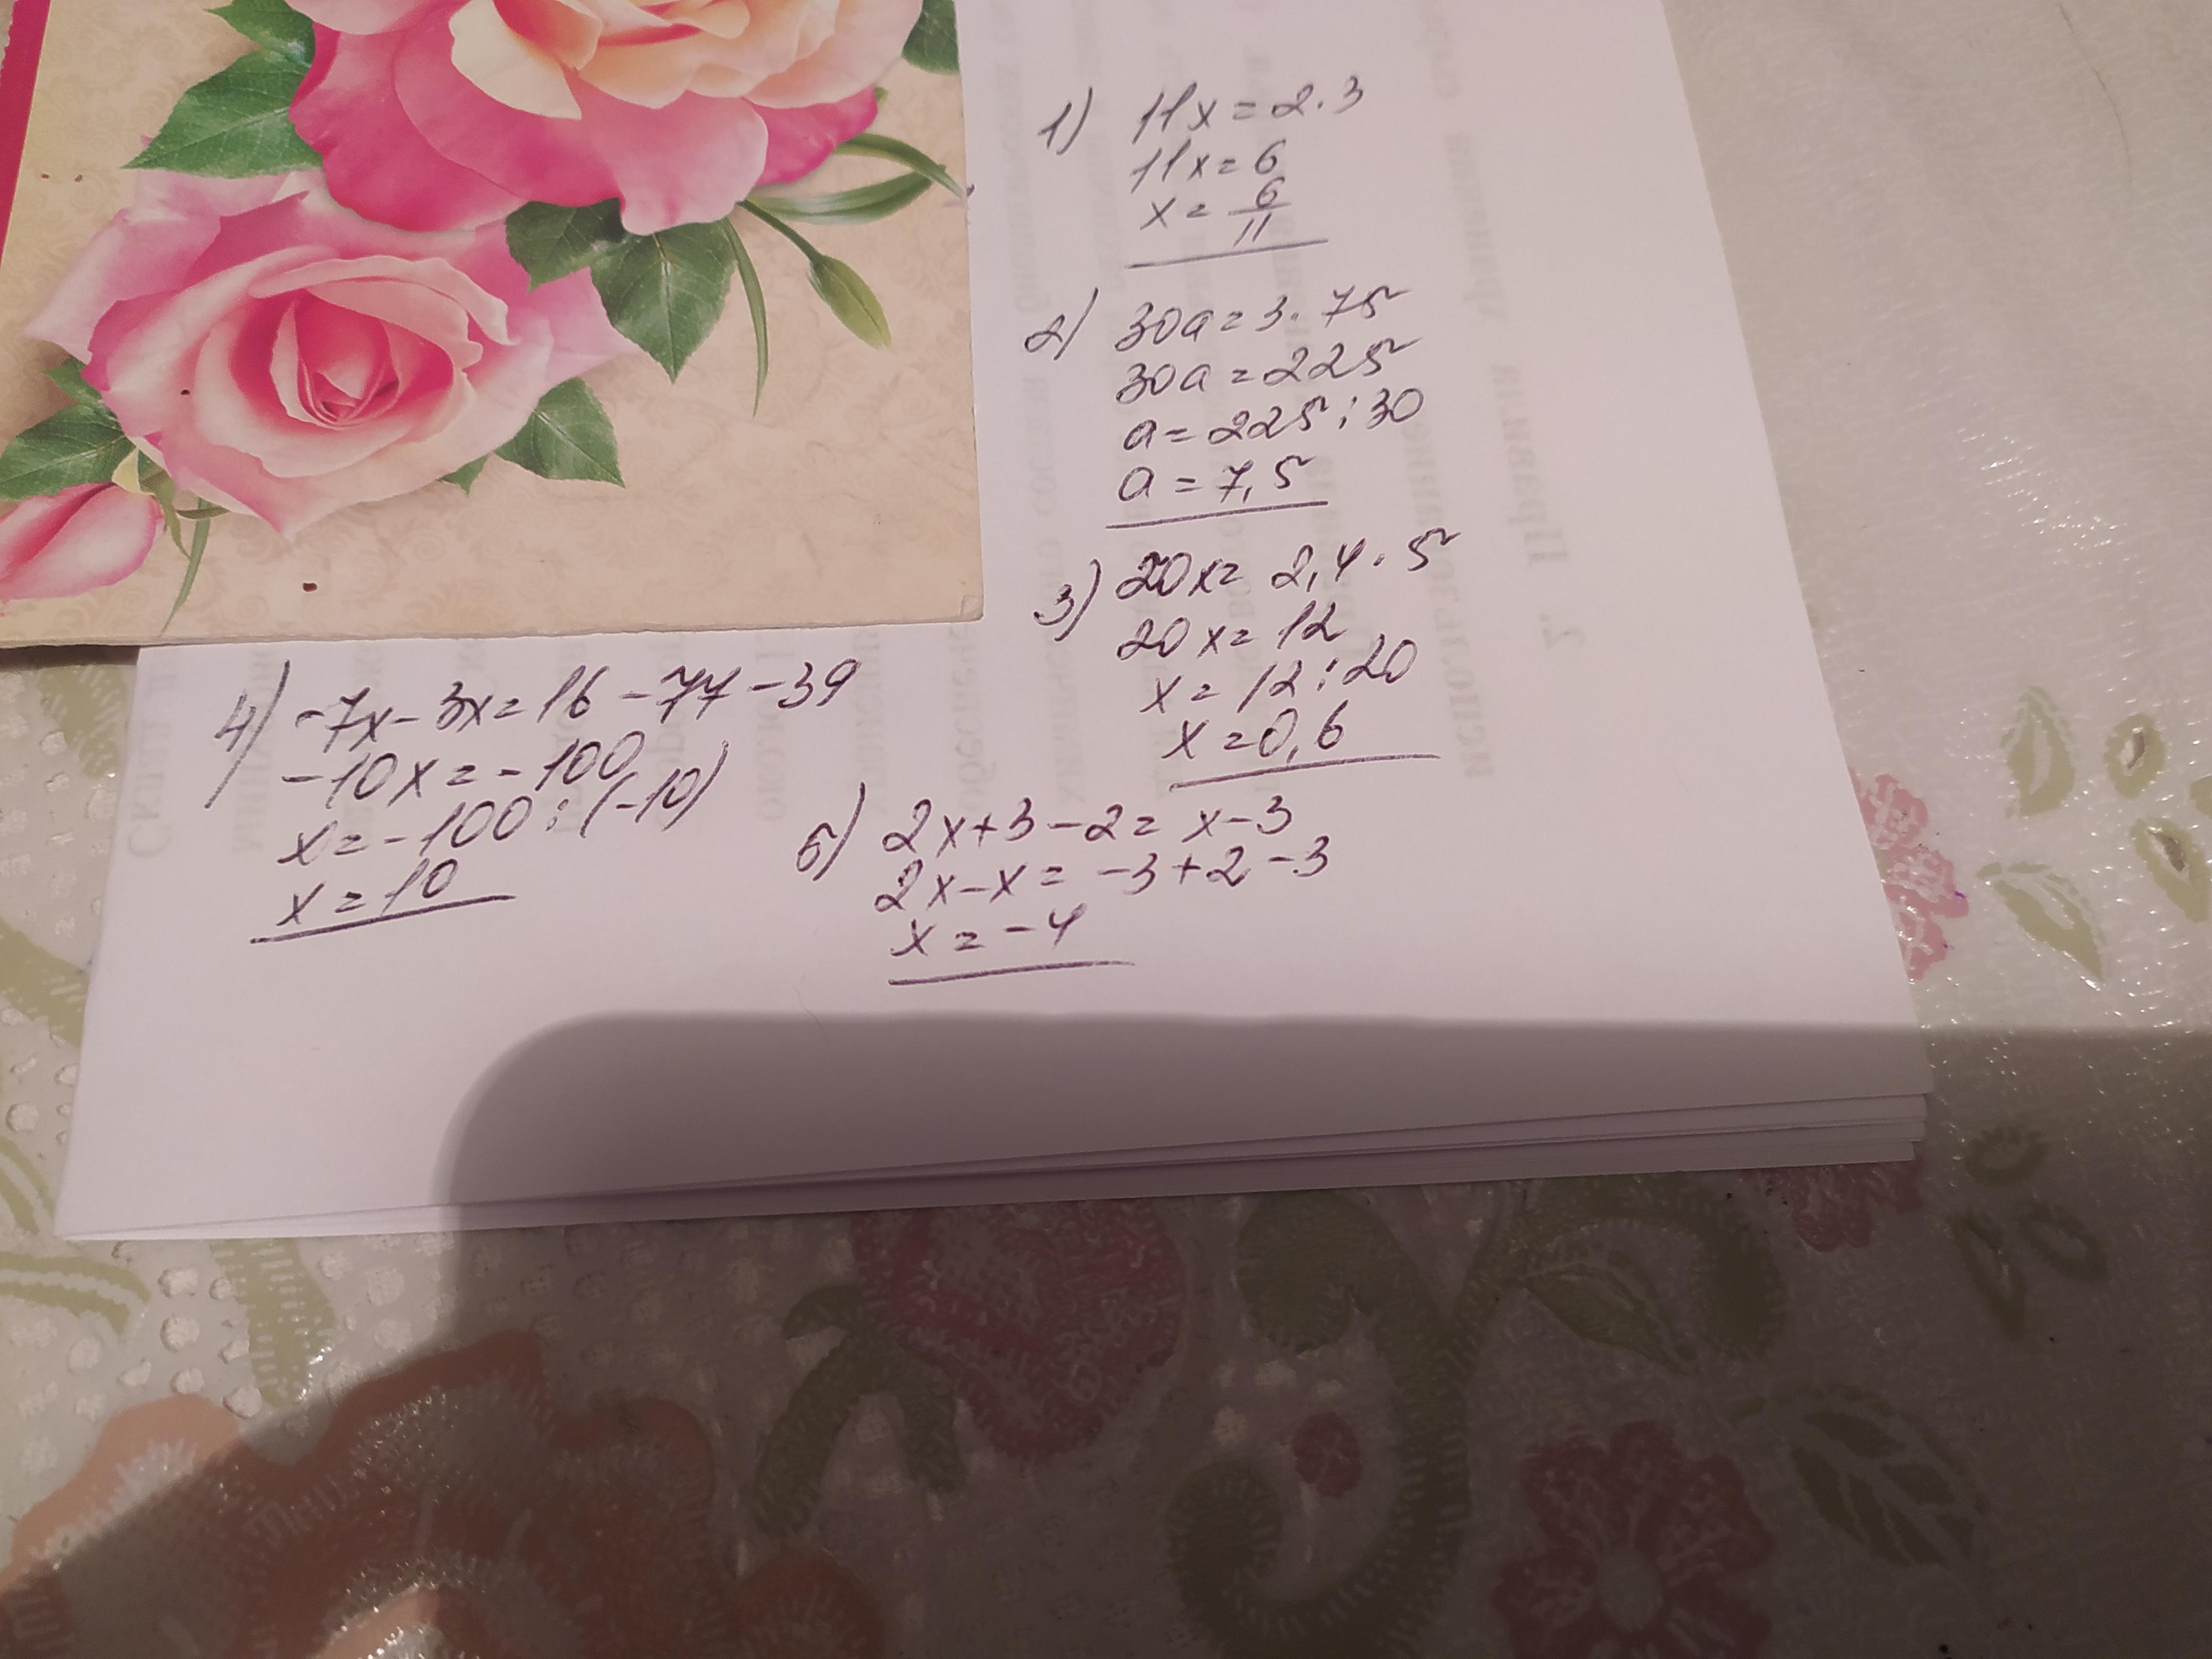 1) 11x = 2 · 3
11x = 6
x = 6/11
2) 30a = 3 · 75
30a = 225
a = 225 : 30
a = 7,5
3) 20x = 2,4 · 5
20x = 12
x = 12 : 20
x = 0,6
4) -7x - 3x = 16 - 77 - 39
-10x = -100
x = -100 : (-10)
x = 10
5) 2x + 3 - 2 = x - 3
2x - x = -3 + 2 - 3
x = -4